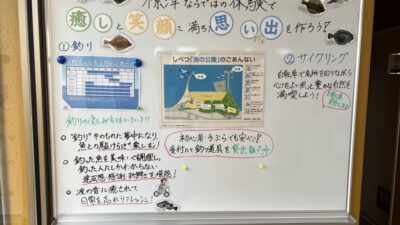 ならではの体験で
癒しと笑顔に満ちた思い出を作ろう!
①釣り
しべつ「海の公園」のごあんない
②サイクリング
自転車で名所を回りながら
心地よい風と豊かな自然を
満喫しよう!
釣りの楽しみ方はいろいろ!!
"釣り"そのものに夢中になり、
魚との駆け引きを楽しむ!
釣った魚を美味しく調理し、
釣った人にしかわからない
達成感、感謝、新鮮さを堪能!
波の音に癒されて
日常を忘れリフレッシュ!
初心者・手ぶらでも安心!
受付にて釣り道具を貸出販売中